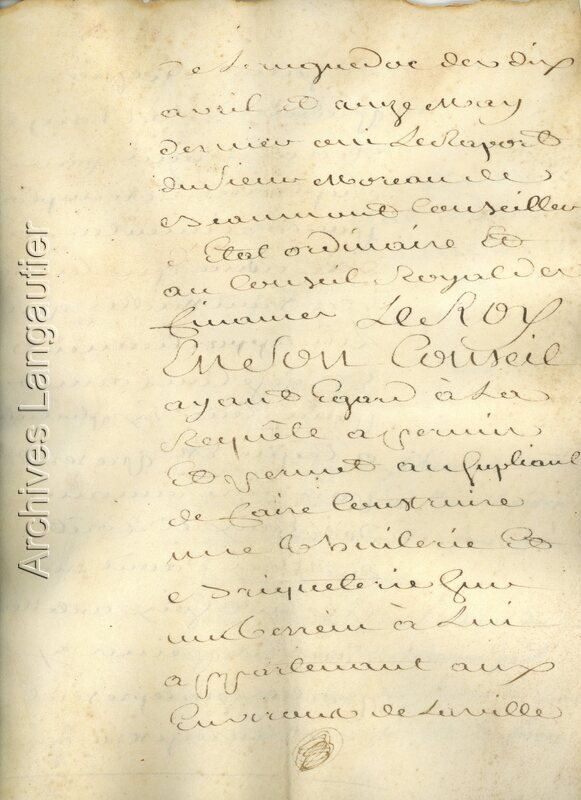 de Languedoc des dix
avril et onze May
dernier oui Le Raport
du sieur Moreau de
Beaumont Conseiller
d'Etat ordinaire Et
au Conseil Royal des
finances Le Roy
En Son Conseil
ayant Egard à La
Requête a permis
Et permet au supliant
de faire Construire
une Thuilerie Et
Briqueterie sur
un terrein à Lui
appartenant aux
Environs de La ville
Archives Langautier